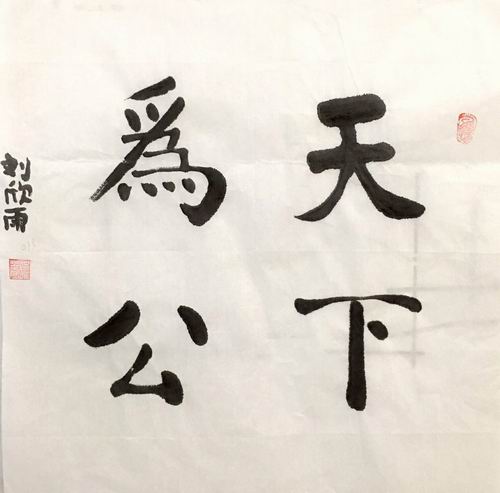 天下
爲公
刘欣雨